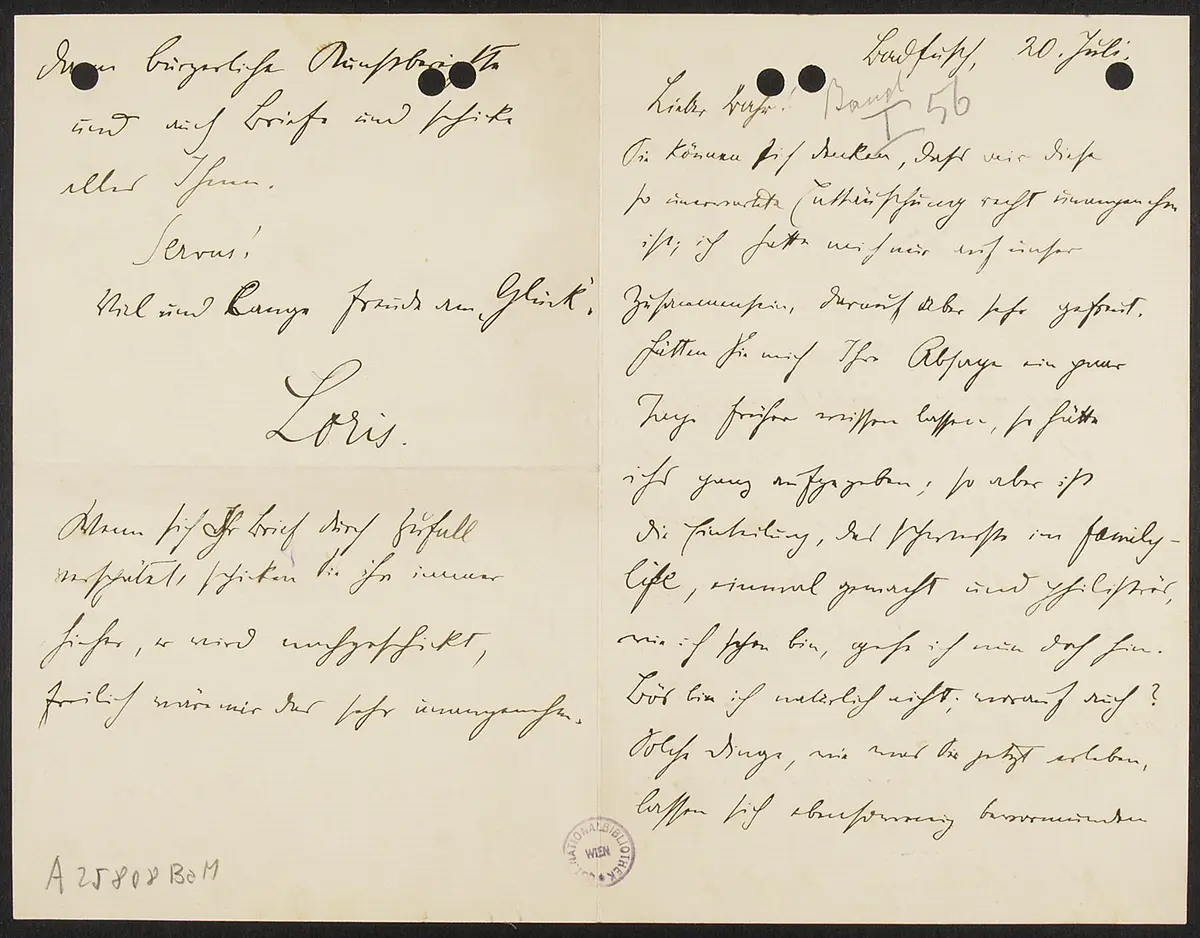 Badfusch, 20. Juli.
Lieber Bahr!
I 56
Sie können sich denken, dass mir diese
so unerwartete Enttäuschung recht unangenehm
ist; ich hatte mich nur auf unser
Zusammensein, darauf aber sehr gefreut.
Hätten Sie mich Ihre Absage ein paar
Tage früher wissen lassen, so hätte
ichs ganz aufgegeben; so aber ist
die Eintheilung, das schwerste im family-
life, einmal gemacht und philiströs,
wie ich schon bin, gehe ich nun doch hin.
Bös bin ich natürlich nicht; worauf auch?
Solche Dinge, wie was Sie jetzt erleben,
lassen sich ebensowenig bevormunden
dann bürgerliche Kunstberichte
und auch Briefe und schicke
alles Ihnen.
Servus!
Viel und Lange Freude am „Glück".
Loris.
Wenn sich Ihr Brief durch Zufall
verspätet, schicken Sie ihn immer
hieher, er wird nachgeschickt,
freilich wäre mir das sehr unangenehm.
A 25808 BaM
NATIONALBIBLIOTHEK
WIEN